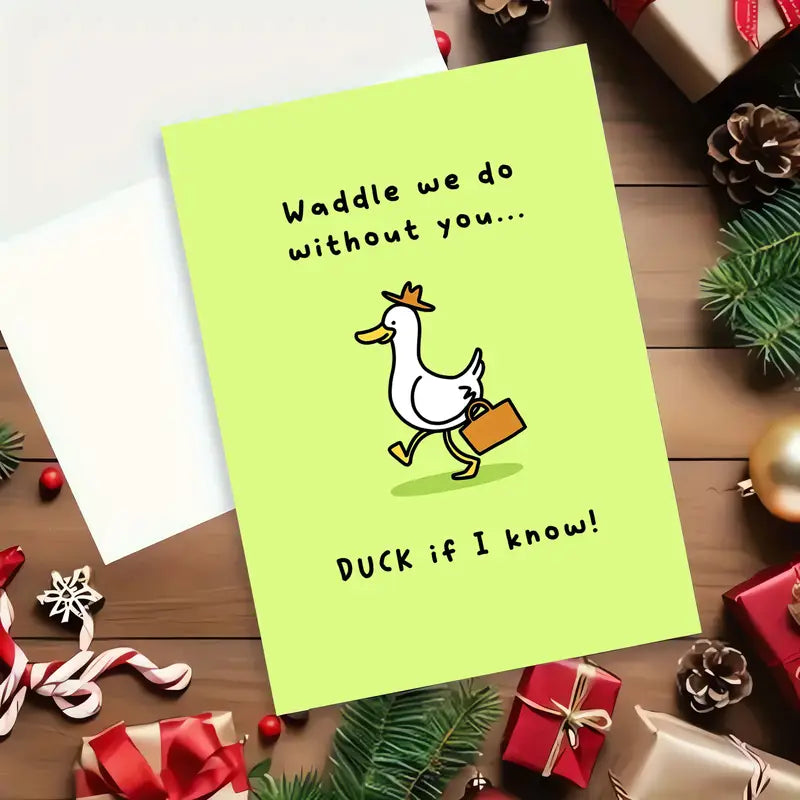 Waddle we do
without you...
DUCK if I know!